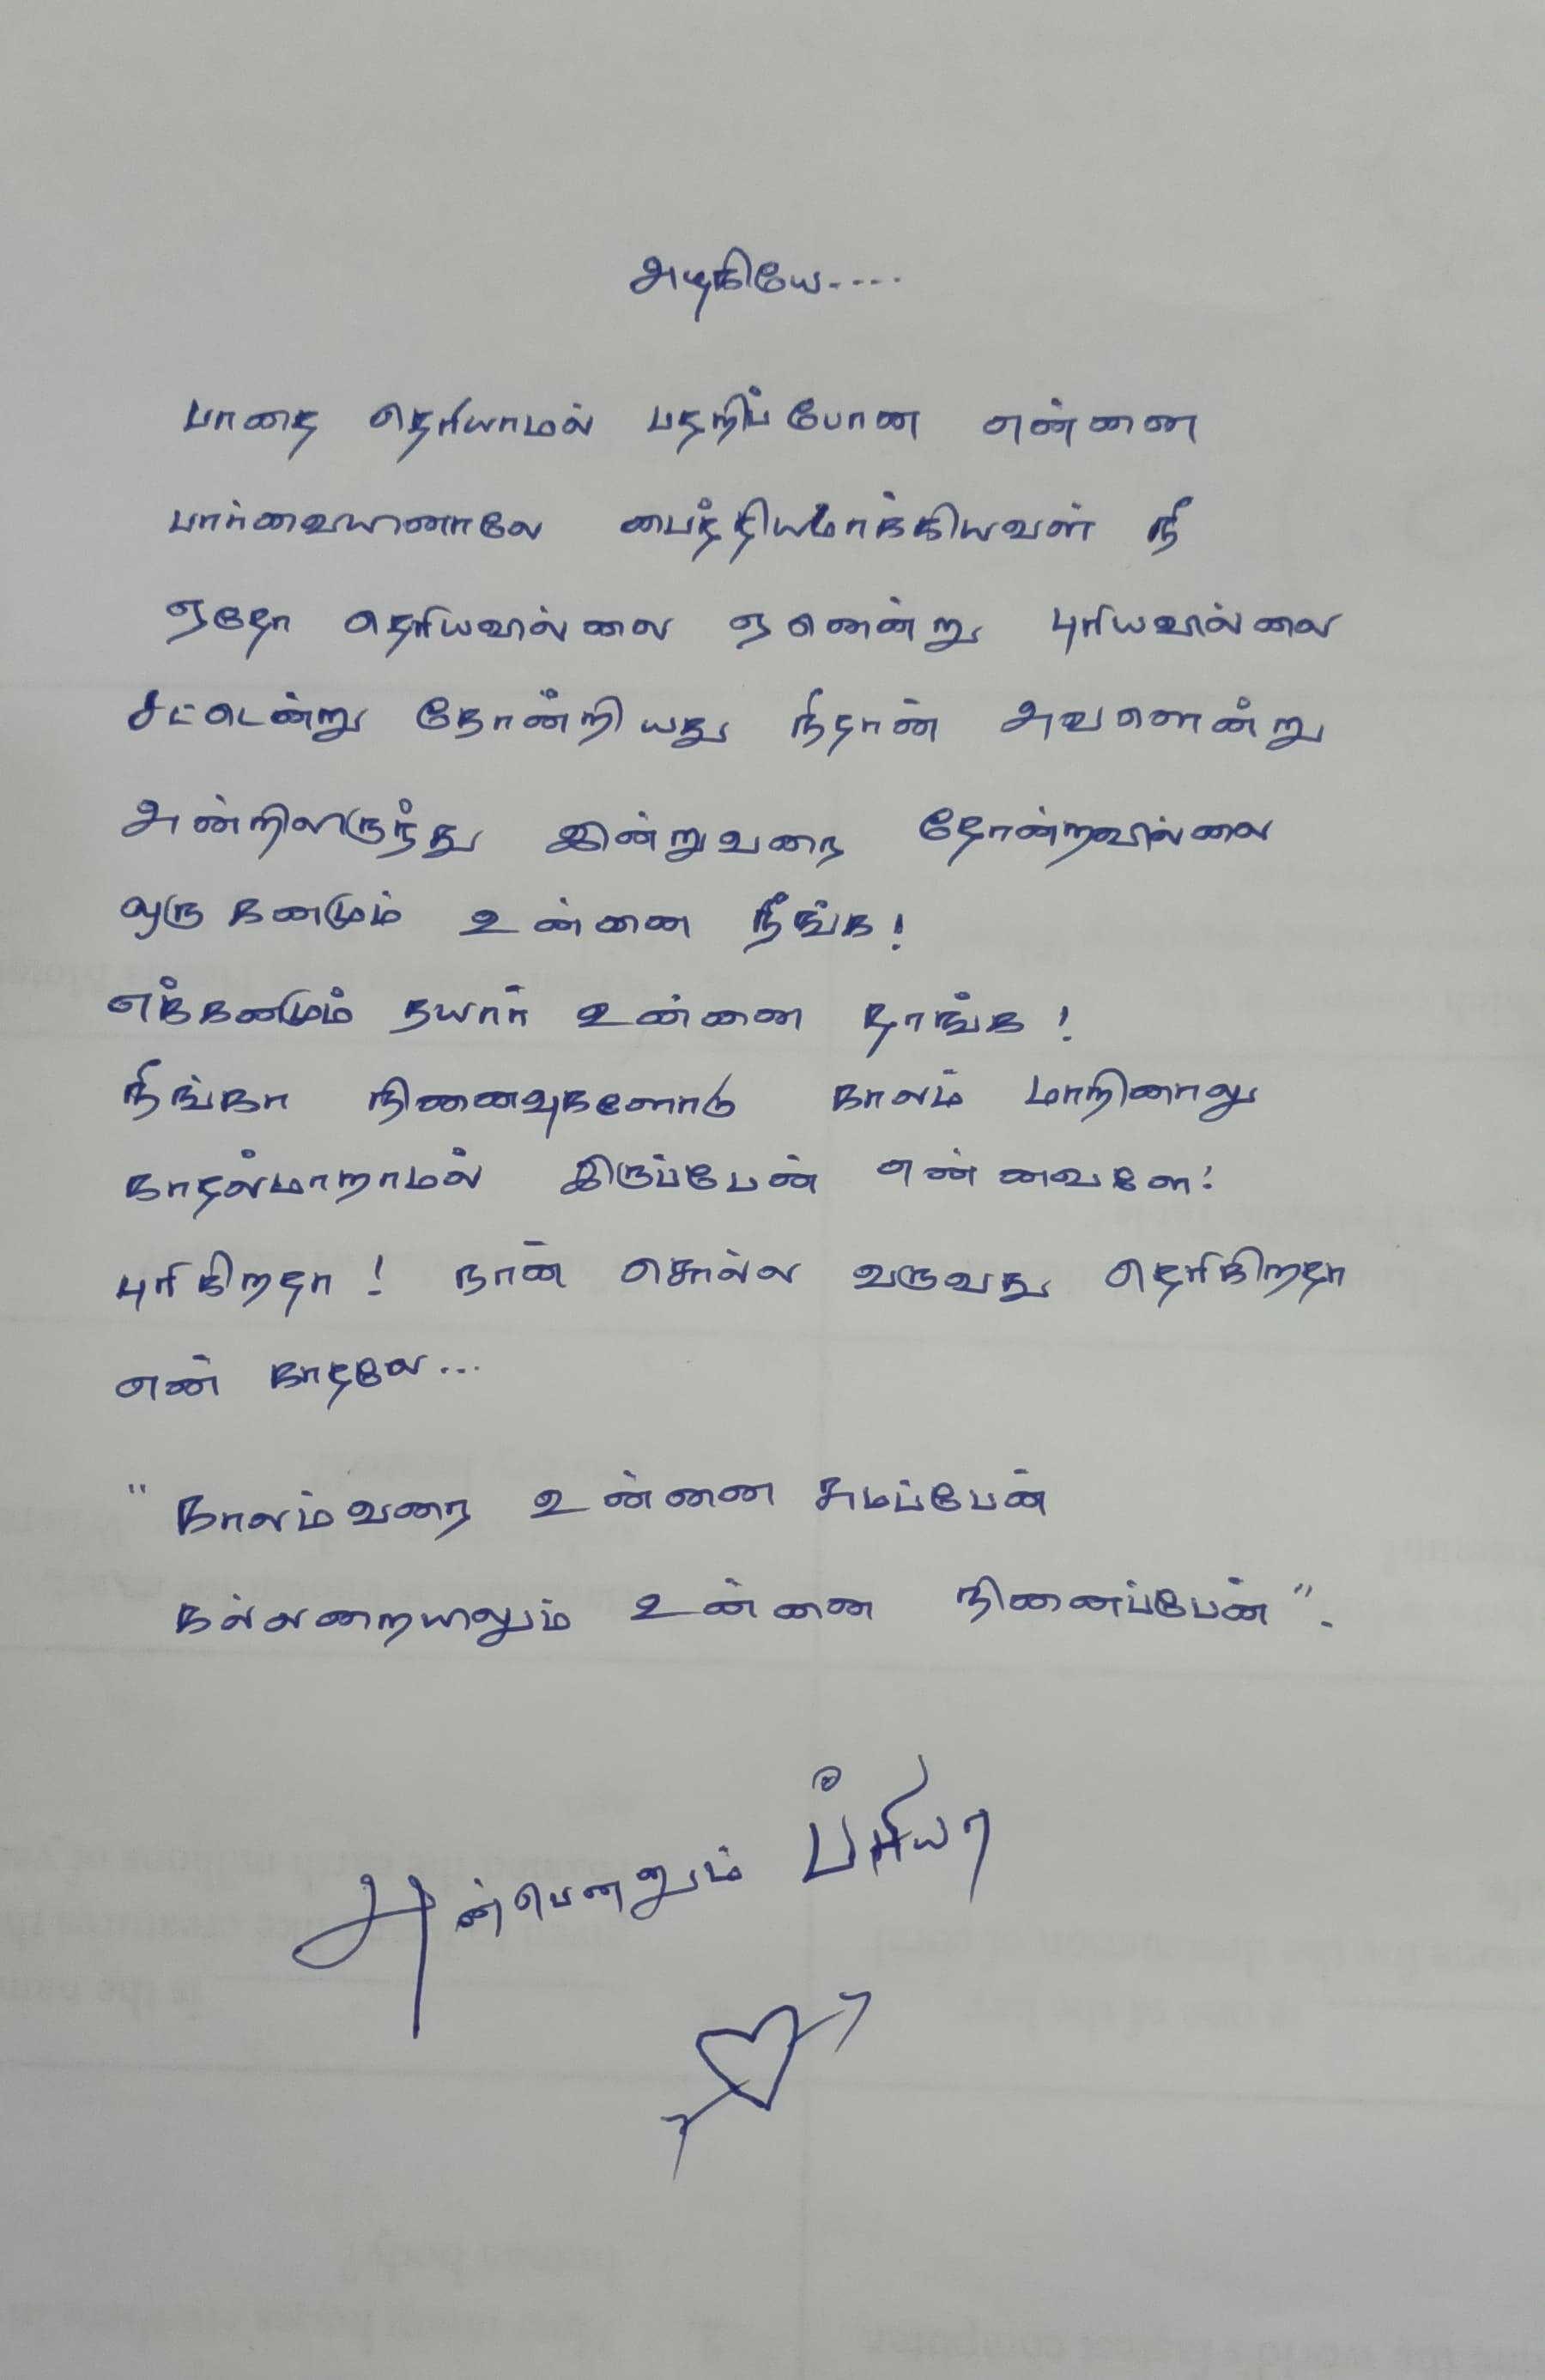 அழகியே.....
பாதை தெரியாமல் பதறிப் போன என்னை
பார்வையாலே பைத்தியமாக்கியவள் நீ
ஏதோ தெரியவில்லை ஏனென்று புரியவில்லை
சட்டென்று தோன்றியது நீதான் அவளென்று
அன்றிலிருந்து இன்றுவரை தோன்றவில்லை
ஒரு கணமும் உன்னை நீங்க!
எக்கணமும் தயார் உன்னை தாங்க!
நீங்கா நினைவுகளோடு காலம் மாறினாலு
காதல்மாறாமல் இருப்பேன் என்னவளே!
புரிகிறதா! நான் சொல்ல வருவது தெரிகிறதா
என் காதலே...
" காலம்வரை உன்னை சுமப்பேன்
கல்லறையிலும் உன்னை நினைப்பேன் ".
அன்பெனும் ப்ரியா